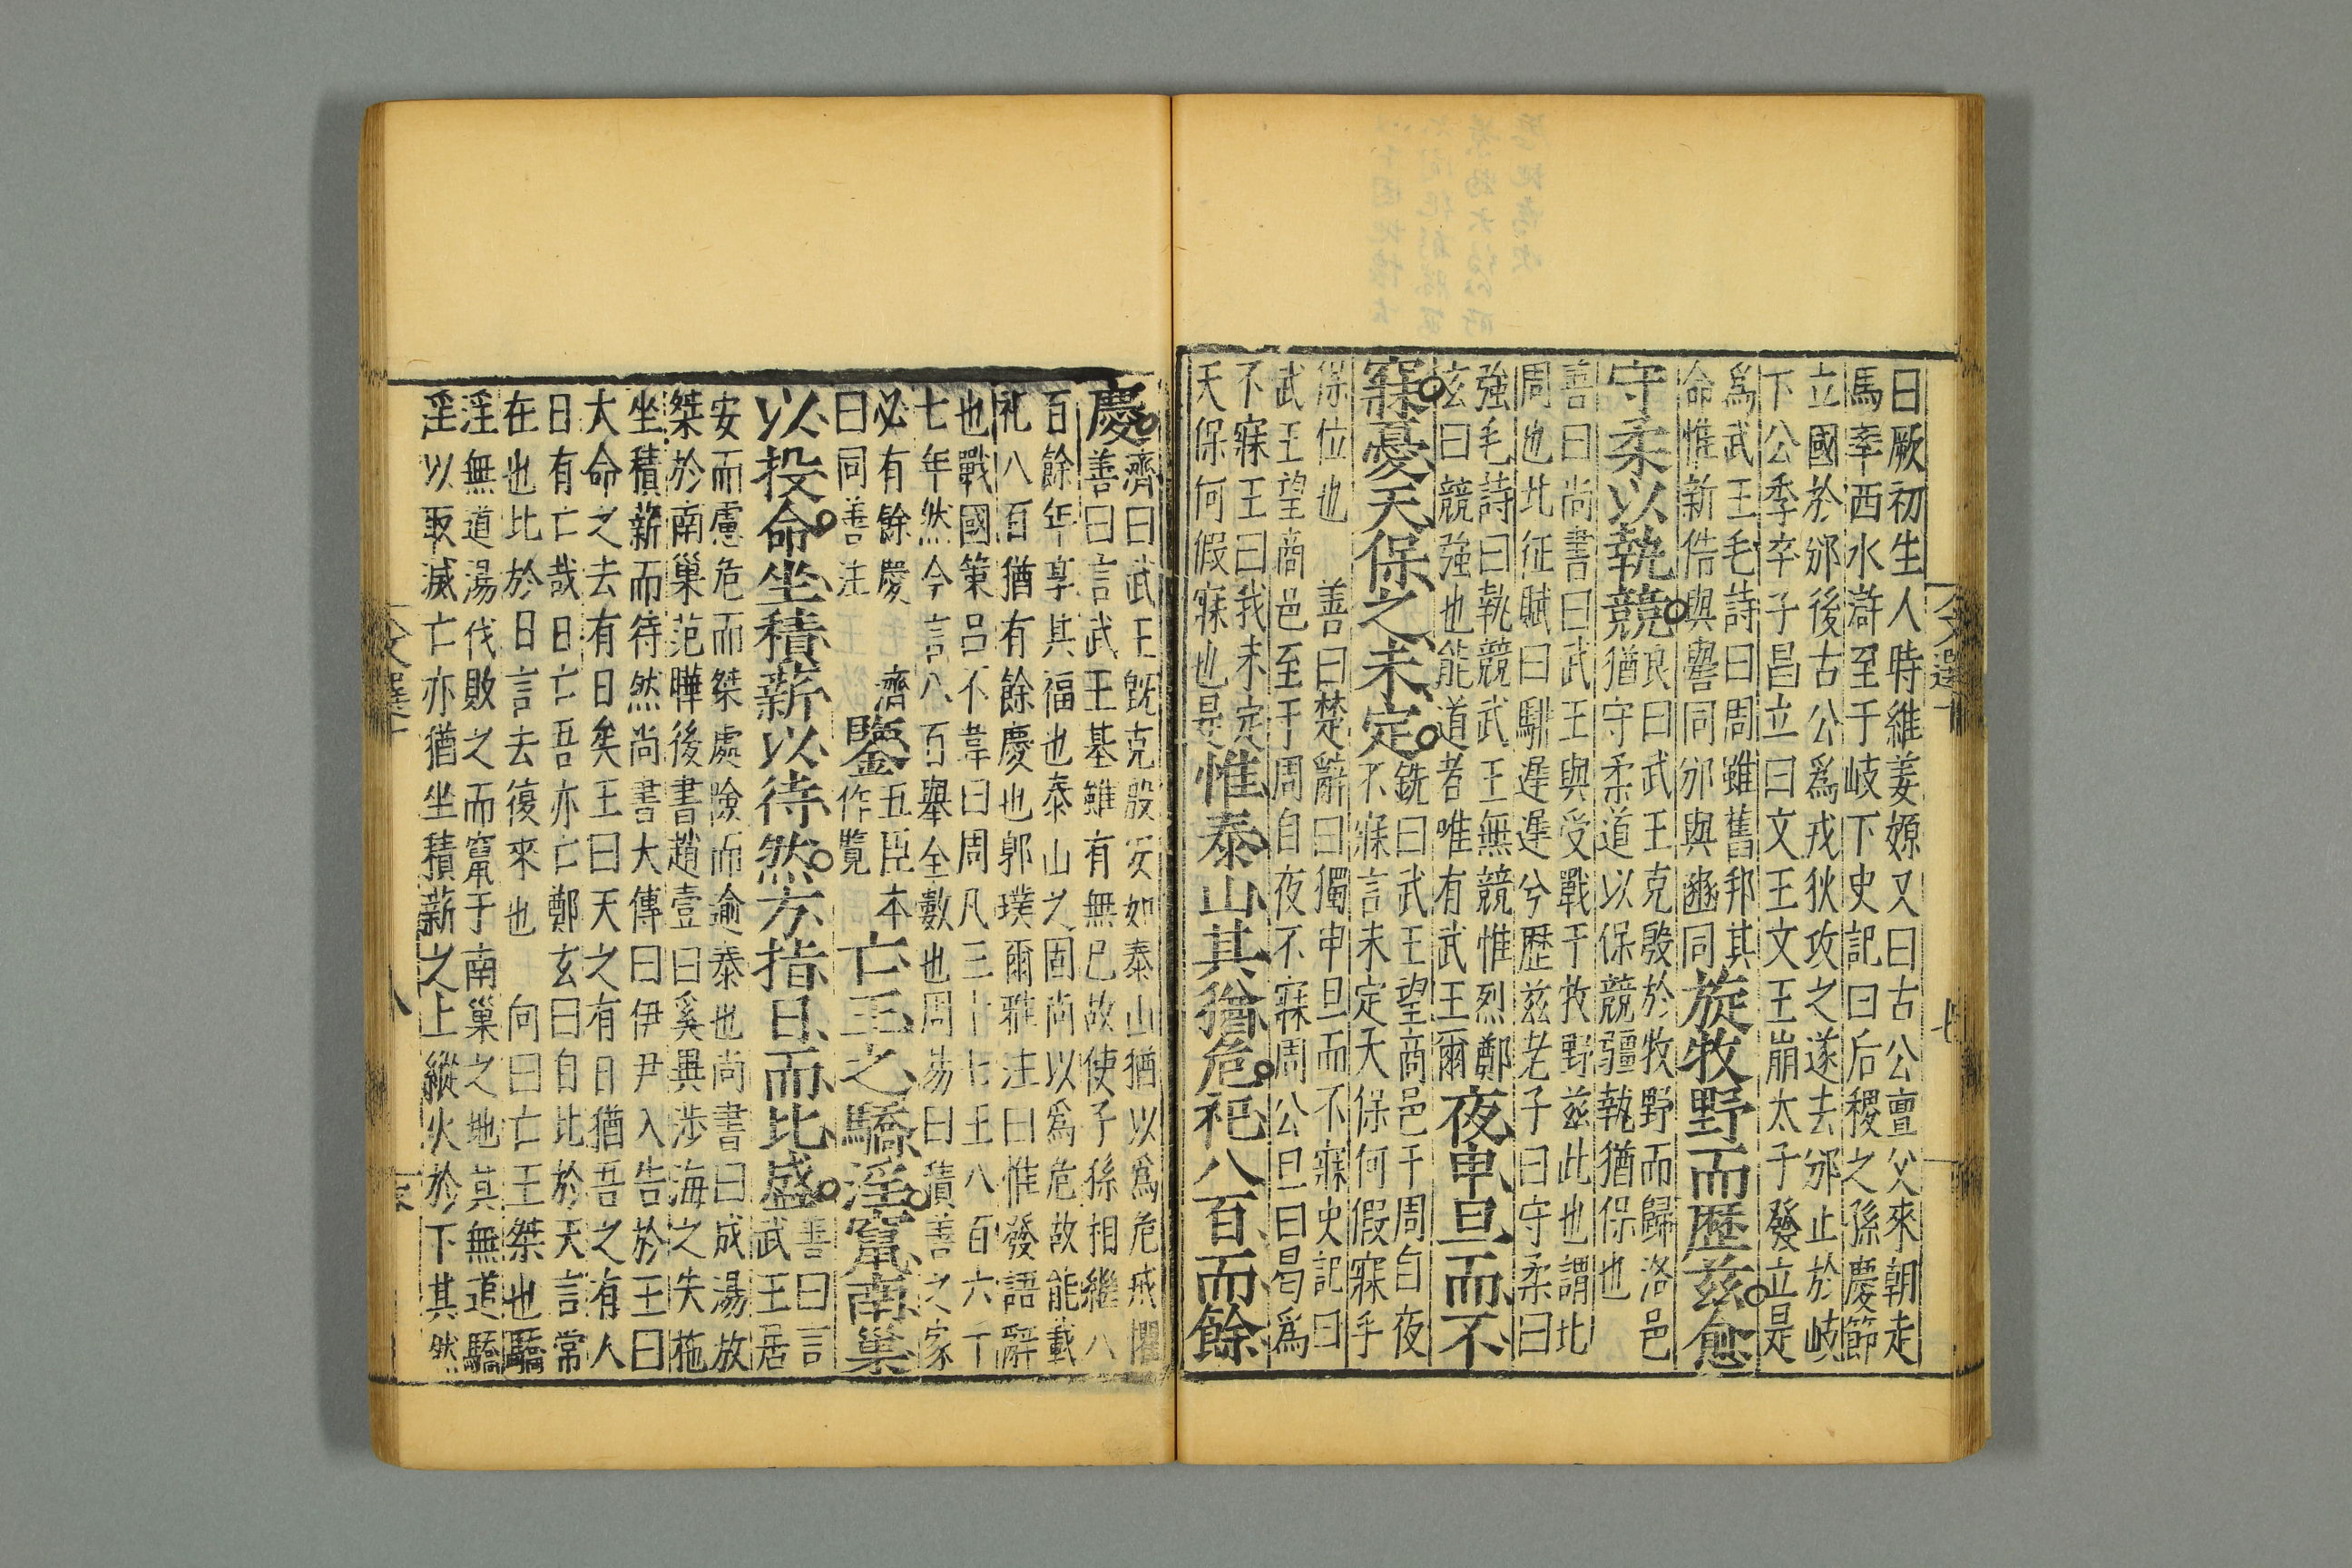 曰厥初生人時維姜嫄又曰古公亶父來朝走
馬率西水滸至于岐下史記曰后稷之孫慶節
立國於邠後古公爲戎狄攻之遂去邠止於岐
下公季卒子昌立曰文王文王崩太子發立是
爲武王毛詩曰周雖舊邦其
命惟新俈與嚳同邠與豳同
旋牧野而歷茲愈
守柔以執競
良曰武王克殷於牧野而歸洛邑
猶守柔道以保競疆執猶保也
善曰尚書曰武王與受戰于牧野茲此也謂北
周也北征賦曰騑遲遲兮歷茲老子曰守柔曰
強毛詩曰執競武王無競惟烈鄭
玄曰競強也能道者唯有武王爾
夜申旦而不
寐憂天保之未定
銑曰武王望商邑于周自夜
不寐言未定天保何假寐乎
保位也 善曰楚辭曰獨申旦而不寐史記曰
武王望商邑至于周自夜不寐周公旦曰曷爲
不寐王曰我未定
天保何假寐也是
惟泰山其猶危祀八百而餘
慶
濟曰武王旣克殷安如泰山猶以爲危戒懼
善曰言武王基雖有無已故使子孫相繼八
百餘年享其福也泰山之固尚以爲危故能載
祀八百猶有餘慶也郭璞爾雅注曰惟發語辭
也戰國策呂不韋曰周凡三十七王八百六十
七年然今言八百舉全數也周易曰積善之家
必有餘慶 濟
曰同善注
鑒
五臣本
作覽
亡王之驕淫竄南巢
以投命坐積薪以待然方指日而比盛
善曰言
武王居
安而慮危而桀處險而逾泰也尚書曰成湯放
桀於南巢范曄後書趙壹曰奚異涉海之失柂
坐積薪而待然尚書大傳曰伊尹入告於王曰
大命之去有日矣王曰天之有日猶吾之有人
日有亡哉日亡吾亦亡鄭玄曰自比於天言常
在也比於日言去復來也 向曰亡王桀也驕
淫無道湯伐敗之而竄于南巢之地其無道驕
淫以取滅亡亦猶坐積薪之上縱火於下其然
文選十
七
文選十
八